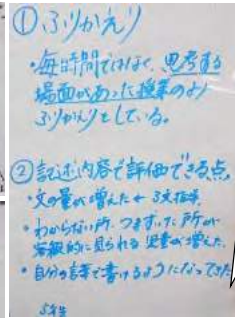 ①ふりかえり
・毎時間ではなく、思考する
場面があった授業のみ
ふりかえりとしている。
②記述内容で評価できる点。
・文の量が増えた ← 3文指導
・わからない所、つまずいた所が
客観的に見られる児童が増えた。
・自分の言葉で書けるようになってきた
5年生